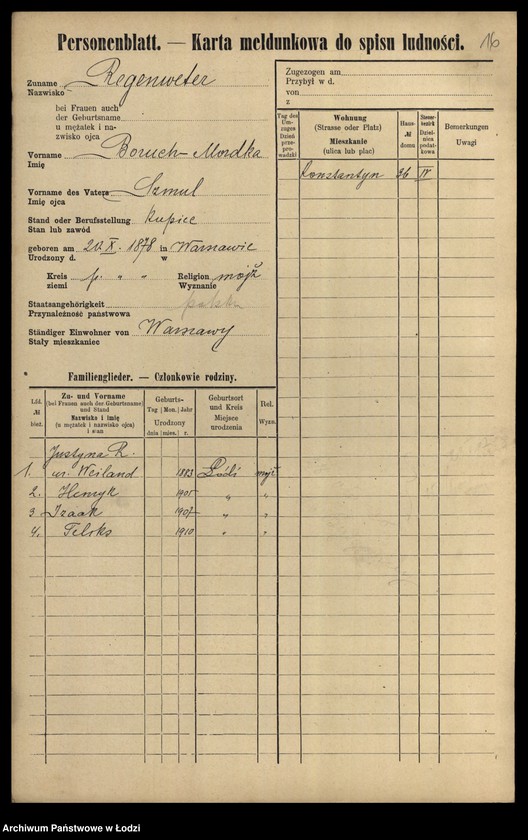 Personenblatt. — Karta meldunkowa do spisu ludności.
16
Zuname
Nazwisko
Regenweter
bei Frauen auch
der Geburtsname
u mężatek i na-
zwisko ojca
Vorname
Imię
Boruch-Mordka
Vorname des Vaters
Imię ojca
Szmul
Stand oder Berufsstellung
Stan lub zawód
kupiec
geboren am 20.X. 1878 in Warszawie
Urodzony d. w
Kreis
ziemi
p. " "
Religion
Wyznanie
mojż
Staatsangehörigkeit
Przynależność państwowa
polska
Ständiger Einwohner von
Stały mieszkaniec
Warszawy
Familienglieder. — Członkowie rodziny.
Lfd.
№
bież.
Zu- und Vorname
(bei Frauen auch der Geburtsname)
und Stand
Nazwisko i imię
(u mężatek i nazwisko ojca)
i stan
Geburts-
Tag Mon. Jahr
Urodzony
dnia mies. r.
Geburtsort
und Kreis
Miejsce
urodzenia
Rel.
Wyzn.
Justyna R.
1. ur. Weiland 1883 Łódź mojż
2. Henryk 1905 " "
3 Izaak 1907 " "
4. Feliks 1910 " "
Zugezogen am
Przybył w d.
von
z
Tag des
Um-
zuges
Dzień
prze-
prowa-
dzki
Wohnung
(Strasse oder Platz)
Mieszkanie
(ulica lub plac)
Haus-
№
domu
Steuer-
bezirk
Dziel-
nica
podat-
kowa
Bemerkungen
Uwagi
Konstantyn 36 IV
Archiwum Państwowe w Łodzi